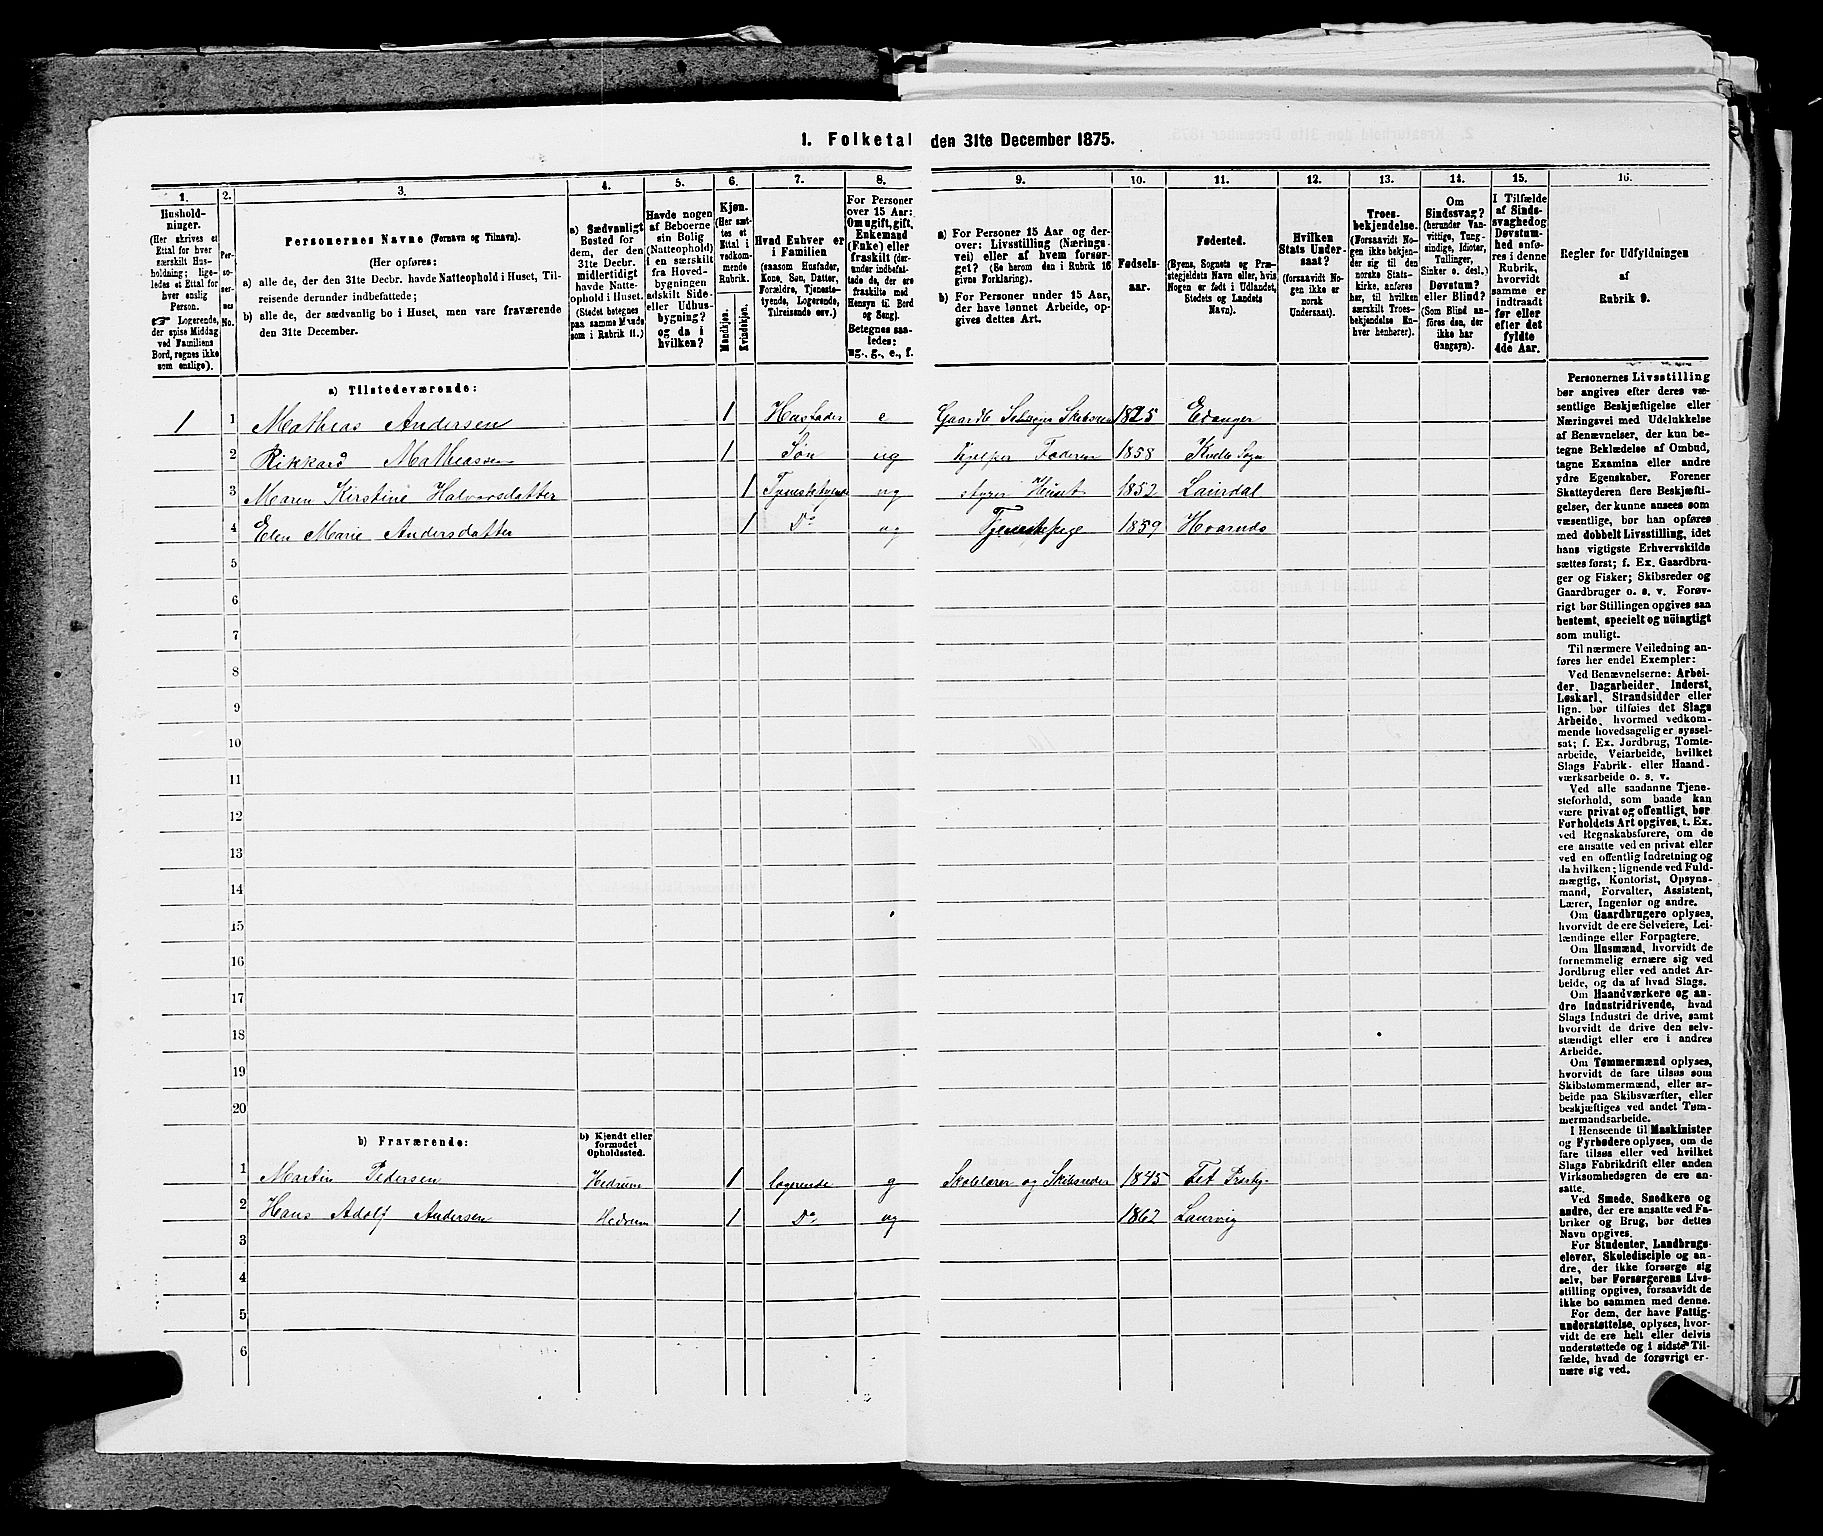 1. Folketal den 31te December 1875.
1. 2. 3. 4. 5. 6. 7. 8. 9. 10. 11. 12. 13. 14. 15. 16.
Husholdninger.
(Her skrives et
Ettal for hver
særskilt Husholdning;
ligeledes et Ettal for
hver enslig
Person.
☞ Logerende,
der spise Middag
ved Familiens
Bord, regnes ikke
som enslige).
Personernes No.
Personernes Navne (Fornavn og Tilnavn).
(Her opføres:
a) alle de, der den 31te Decbr. havde Natteophold i Huset, Tilreisende derunder indbefattede;
b) alle de, der sædvanlig bo i Huset, men vare fraværende
den 31te December.
a) Sædvanligt
Bosted for
dem, der den
31te Decbr.
midlertidigt
havde Natteophold
i Huset.
(Stedet betegnes
paa samme Maade
som i Rubrik 11.)
Havde nogen
af Beboerne
sin Bolig
(Natteophold)
i en særskilt
fra Hovedbygningen
adskilt Side-
eller Udhusbygning?
og da i
hvilken?
Kjøn.
(Her sættes
et
Ettal i
vedkommende
Rubrik.
Mandkjøn. Kvindekjøn.
Hvad Enhver er
i Familien
(saasom Husfader,
Kone, Søn, Datter,
Forældre, Tjenestetyende,
Logerende,
Tilreisende osv.)
For Personer
over 15 Aar:
Om ugift, gift,
Enkemand
(Enke) eller
fraskilt (derunder
indbefattede
de, der ere
fraskilte med
Hensyn til Bord
og Seng).
Betegnes saaledes:
ug., g., e., f.
a) For Personer 15 Aar og derover:
Livsstilling (Næringsvei)
eller af hvem forsørget?
(Se herom den i Rubrik 16
givne Forklaring).
b) For Personer under 15 Aar,
der have lønnet Arbeide, opgives
dettes Art.
Fødselsaar.
Fødested.
(Byens, Sognets og Præstegjeldets
Navn eller, hvis
Nogen er født i Udlandet,
Stedets og Landets
Navn).
Hvilken
Stats Undersaat?
(forsaavidt Nogen
ikke er
norsk
Undersaat).
Troesbekjendelse.
(Forsaavidt Nogen
ikke bekjender
sig til den
norske Statskirke,
anføres
her, til hvilken
særskilt Troesbekjendelse
Enhver
henhører).
Om
Sindssvag?
(herunder Vanvittige,
Tungsindige,
Idioter,
Tullinger,
Sinker o. desl.)
Døvstum?
eller Blind?
(Som Blind anføres
den, der
ikke har
Gangsyn).
I Tilfælde
af Sindssvaghed
og
Døvstumhed
anføres
i denne
Rubrik,
hvorvidt
samme er
indtraadt
før eller
efter det
fyldte
4de Aar.
Regler for Udfyldningen
af
Rubrik 9.
a) Tilstedeværende:
1 1 Mathias Andersen 1 Husfader e Gaardb Selveier 1825 Edanger
2 Rikkard Mathiassen 1 Søn ug hjelper Faderen 1858 Kvelle Sogn
3 Maren Kirstine Halvorsdatter 1 Tjenestetyende ug styrer Huset 1852 Laurdal
4 Elen Marie Andersdatter 1 Do ug Tjenestepige 1859 Hvarnds
5
6
7
8
9
10
11
12
13
14
15
16
17
18
19
20
b) Fraværende:
b) Kjendt eller
formodet
Opholdssted.
1 Martin Pedersen Hedrum 1 logerende g Skolelærer og Skibsreder 1845
2 Hans Adolf Andersen Hedrum 1 Do ug 1862 Laurvig
3
4
5
6
Personernes Livsstilling
bør angives efter deres væsentlige
Beskjæftigelse eller
Næringsvei med Udelukkelse
af Benævnelser, der kun betegne
Beklædelse af Ombud,
tagne Examina eller andre
ydre Egenskaber. Forener
Skatteyderen flere Beskjæftigelser,
der kunne ansees som
væsentlige, bør han opføres
med dobbelt Livsstilling, idet
hans vigtigste Erhvervskilde
sættes først; f. Ex. Gaardbruger
og Fisker; Skibsreder og
Gaardbruger o. s. v. Forøvrigt
bør Stillingen opgives saa
bestemt, specielt og nøiagtigt
som muligt.
Til nærmere Veiledning anføres
her endel Exempler:
Ved Benævnelserne: Arbeider,
Dagarbeider, Inderst,
Løskarl, Strandsidder eller
lign. bør tilføies det Slags
Arbeide, hvormed vedkommende
hovedsagelig er sysselsat;
f. Ex. Jordbrug, Tomtearbeide,
Veiarbeide, hvilket
Slags Fabrik- eller Haandværksarbeide
o. s. v.
Ved alle saadanne Tjenesteforhold,
som baade kan
være privat og offentligt, bør
Forholdets Art opgives, t. Ex.
ved Regnskabsførere, om de
ere ansatte ved en privat eller
ved en offentlig Indretning og
da hvilken; lignende ved Fuldmægtig,
Kontorist, Opsynsmand,
Forvalter, Assistent,
Lærer, Ingeniør og andre.
Om Gaardbrugere oplyses,
hvorvidt de ere Selveiere, Leilændinge
eller Forpagtere.
Om Husmænd, hvorvidt de
fornemmelig ernære sig ved
Jordbrug eller ved andet Arbeide,
og da af hvad Slags.
Om Haandværkere og andre
Industridrivende, hvad
Slags Industri de drive, samt
hvorvidt de drive den selvstændigt
eller ere i andres
Arbeide.
Om Tømmermænd oplyses,
hvorvidt de fare tilsøs som
Skibstømmermænd, eller arbeide
paa Skibsværfter, eller
beskjæftiges ved andet Tømmermandsarbeide.
I Henseende til Maskinister
og Fyrbødere oplyses, om de
fare tilsøs eller ved hvilket
Slags Fabrikdrift eller anden
Virksomhedsgren de ere ansatte.
Ved Smede, Snedkere og
andre, der ere ansatte ved Fabriker
og Brug, bør dettes
Navn opgives.
For Studenter, Landbrugselever,
Skoledisciple og andre,
der ikke forsørge sig
selv, bør Forsørgerens Livsstilling
opgives, forsaavidt de
ikke bo sammen med denne.
For dem, der have Fattigunderstøttelse,
oplyses, hvorvidt
de ere helt eller delvis
understøttede og i sidste Tilfælde,
hvad de forøvrigt ernære
sig ved.